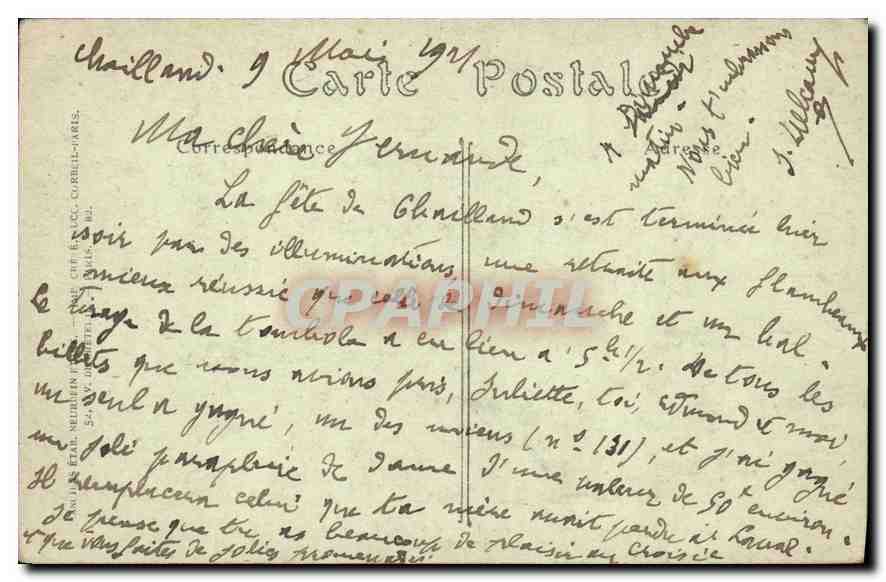 Chailland. 9 Mai 1921
Carte Postale
Correspondance
Adresse
Ma chère Fernande,
La fête de Chailland s'est terminée hier
soir par des illuminations, une retraite aux flambeaux
mieux réussie que celle de dimanche et un bal.
Le tirage de la tombola a eu lieu à 5h 1/2. De tous les
billets que nous avions pris, Juliette, toi, Edmond et moi,
un seul a gagné, un des miens (no 131), et j'ai gagné
un joli parapluie de dame d'une valeur de 50f environ.
Il remplacera celui que ta mère avait perdu à Laval.
Je pense que tu as beaucoup de plaisir au Croisic
et que vous faites de jolies promenades.
A Dimanche
matin.
Nous t'embrassons
bien.
ANCIENS ÉTAB. NEURDEIN
CRÉTÉ, SUCC. CORBEIL-PARIS.
52, AV. DE BRETEUIL
PARIS
CPAPHIL